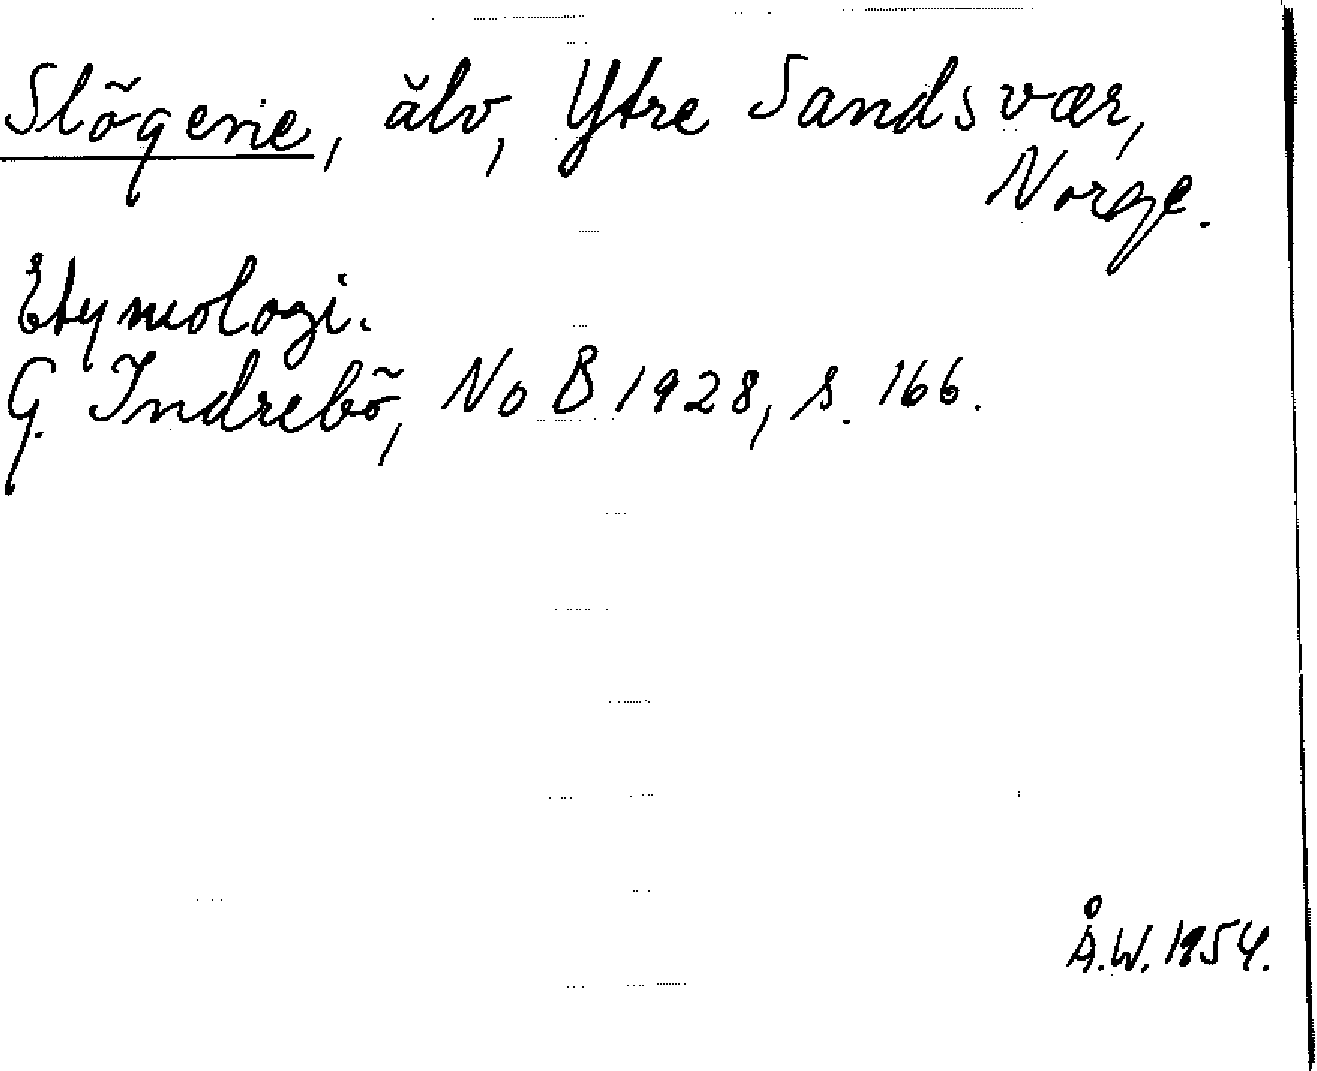 Slögene, älv, Ytre Sandsvær,
Norge.
Etymologi.
G. Indrebö, NoB 1928, s. 166.
Å.W. 1954.